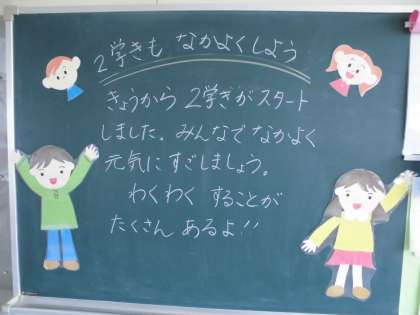 2学きも なかよくしよう
きょうから 2学きがスタート
しました。みんなでなかよく
元気にすごしましょう。
わくわく することが
たくさん あるよ!!